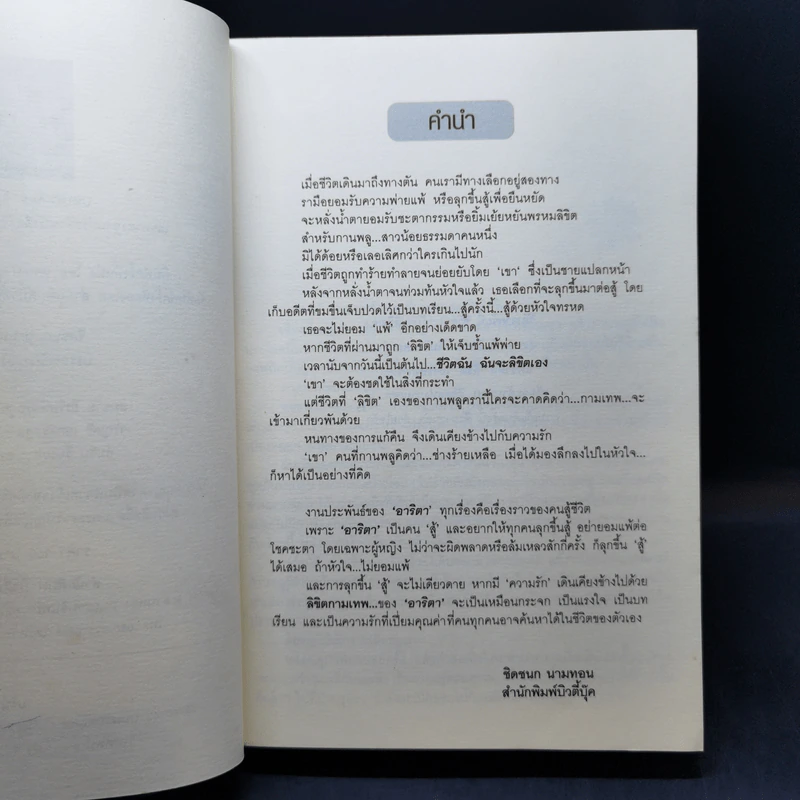 คำนำ
เมื่อชีวิตเดินมาถึงทางตัน คนเรามีทางเลือกอยู่สองทาง
รามือยอมรับความพ่ายแพ้ หรือลุกขึ้นสู้เพื่อยืนหยัด
จะหลั่งน้ำตายอมรับชะตากรรมหรือยิ้มเย้ยหยันพรหมลิขิต
สำหรับกานพลู...สาวน้อยธรรมดาคนหนึ่ง
มิได้ด้อยหรือเลอเลิศกว่าใครเกินไปนัก
เมื่อชีวิตถูกทำร้ายทำลายจนย่อยยับโดย 'เขา' ซึ่งเป็นชายแปลกหน้า
หลังจากหลั่งน้ำตาจนท่วมท้นหัวใจแล้ว เธอเลือกที่จะลุกขึ้นมาต่อสู้ โดย
เก็บอดีตที่ขมขื่นเจ็บปวดไว้เป็นบทเรียน...สู้ครั้งนี้...สู้ด้วยหัวใจทรหด
เธอจะไม่ยอม 'แพ้' อีกอย่างเด็ดขาด
หากชีวิตที่ผ่านมาถูก 'ลิขิต' ให้เจ็บช้ำแพ้พ่าย
เวลานับจากวันนี้เป็นต้นไป...ชีวิตฉัน ฉันจะลิขิตเอง
'เขา' จะต้องชดใช้ในสิ่งที่กระทำ
แต่ชีวิตที่ 'ลิขิต' เองของกานพลูครานี้ใครจะคาดคิดว่า...กามเทพ...จะ
เข้ามาเกี่ยวพันด้วย
หนทางของการแก้คืน จึงเดินเคียงข้างไปกับความรัก
'เขา' คนที่กานพลูคิดว่า...ช่างร้ายเหลือ เมื่อได้มองลึกลงไปในหัวใจ...
ก็หาได้เป็นอย่างที่คิด
งานประพันธ์ของ 'อาริตา' ทุกเรื่องคือเรื่องราวของคนสู้ชีวิต
เพราะ 'อาริตา' เป็นคน 'สู้' และอยากให้ทุกคนลุกขึ้นสู้ อย่ายอมแพ้ต่อ
โชคชะตา โดยเฉพาะผู้หญิง ไม่ว่าจะผิดพลาดหรือล้มเหลวสักกี่ครั้ง ก็ลุกขึ้น 'สู้'
ได้เสมอ ถ้าหัวใจ...ไม่ยอมแพ้
และการลุกขึ้น 'สู้' จะไม่เดียวดาย หากมี 'ความรัก' เดินเคียงข้างไปด้วย
ลิขิตกามเทพ...ของ 'อาริตา' จะเป็นเหมือนกระจก เป็นแรงใจ เป็นบท
เรียน และเป็นความรักที่เปี่ยมคุณค่าที่คนทุกคนอาจค้นหาได้ในชีวิตของตัวเอง
ชิดชนก นามทอน
สำนักพิมพ์บิวตี้บุ๊ค